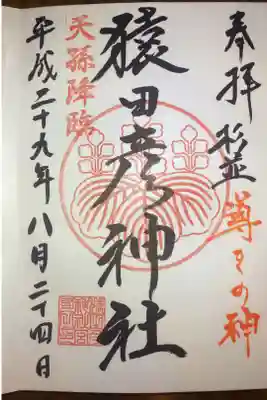 奉拝 杉並 導きの神
猿田彦神社
天孫降臨
平成二十九年八月二十四日